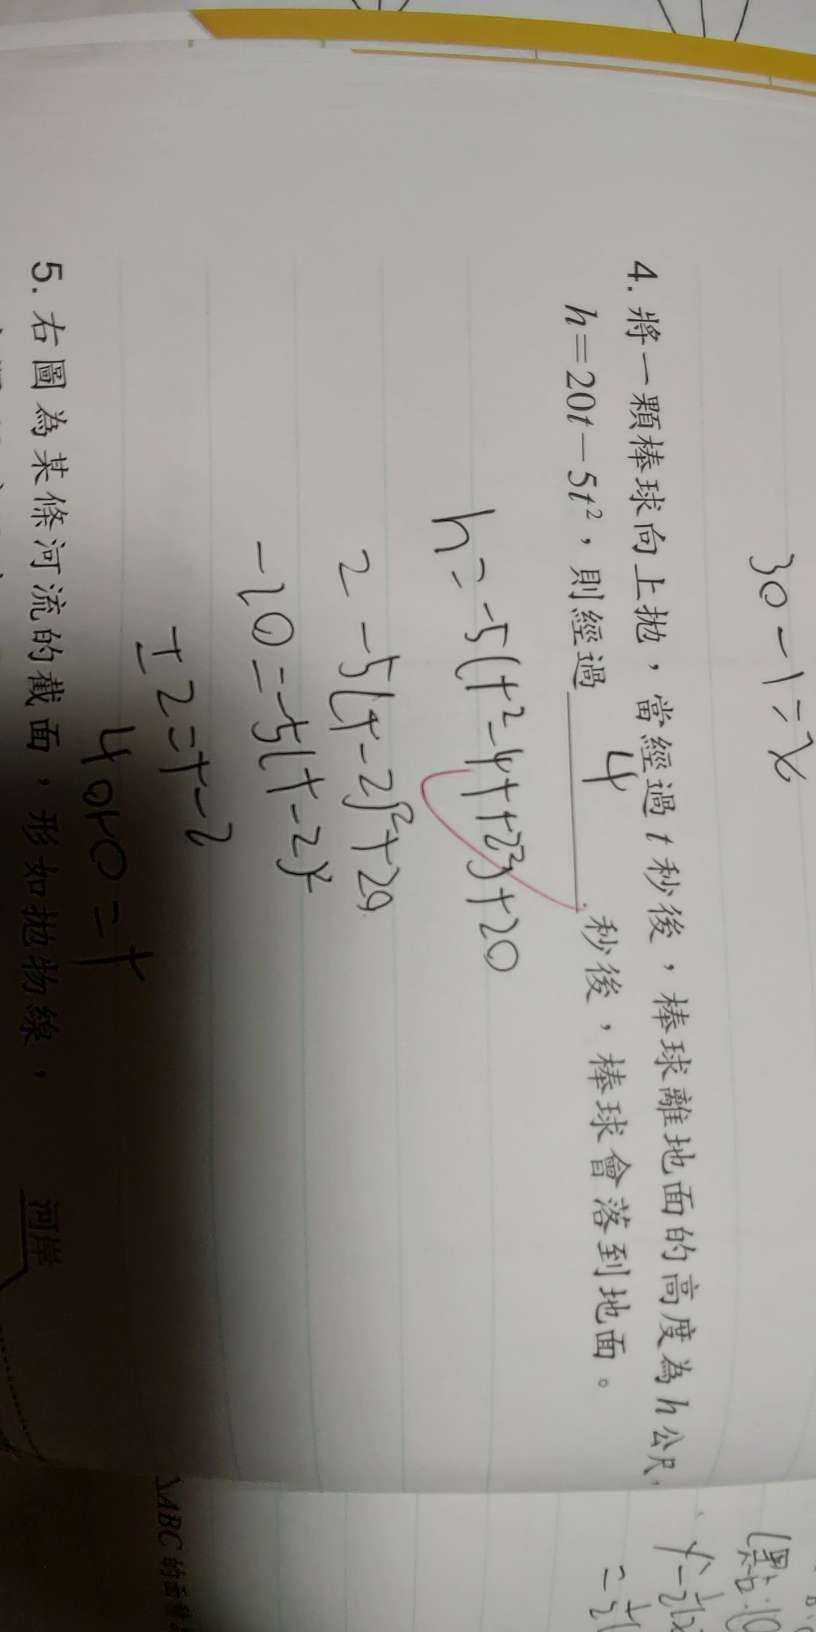 30-1=x
4. 將一顆棒球向上拋，當經過 t 秒後，棒球離地面的高度為 h 公尺，
h=20t-5t²，則經過 4 秒後，棒球會落到地面。
h=-5(t²-4t+2²)+20
-5(t-2)²+20
-20=-5(t-2)²
±2=t-2
4or0=t
5. 右圖為某條河流的截面，形如拋物線，
河岸
ABC 的面